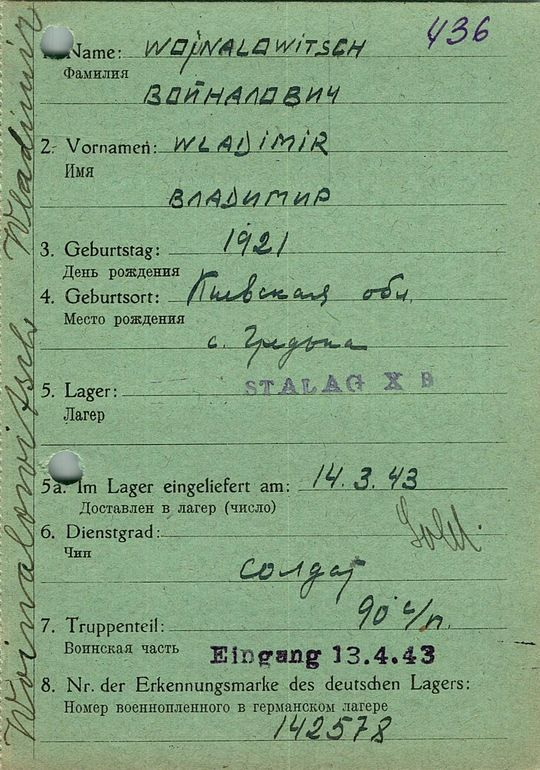 436
1. Name: WOJNALOWITSCH
Фамилия
ВОЙНАЛОВИЧ
2. Vornamen: WLADIMIR
Имя
ВЛАДИМИР
3. Geburtstag: 1921
День рождения
4. Geburtsort: Киевская обл.
Место рождения
с.
5. Lager: STALAG X B
Лагер
5a. Im Lager eingeliefert am: 14.3.43
Доставлен в лагер (число)
6. Dienstgrad: Sold.
Чин
солдат
90 с/п.
7. Truppenteil:
Воинская часть
Eingang 13.4.43
8. Nr. der Erkennungsmarke des deutschen Lagers:
Номер военнопленного в германском лагере
142578
Woinalovitsch Wladimir